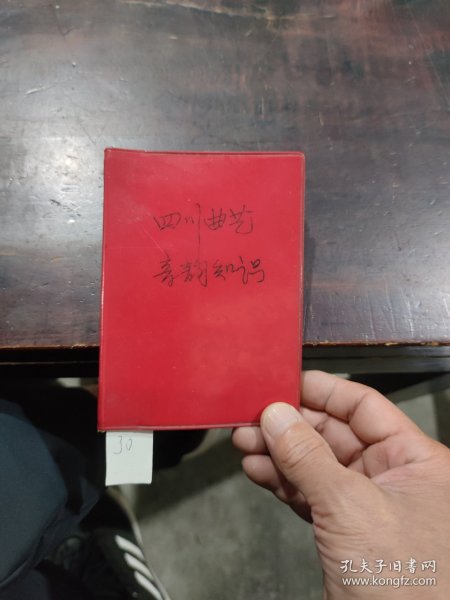 四川曲艺
音韵知识
30
孔夫子旧书网
www.kongfz.com